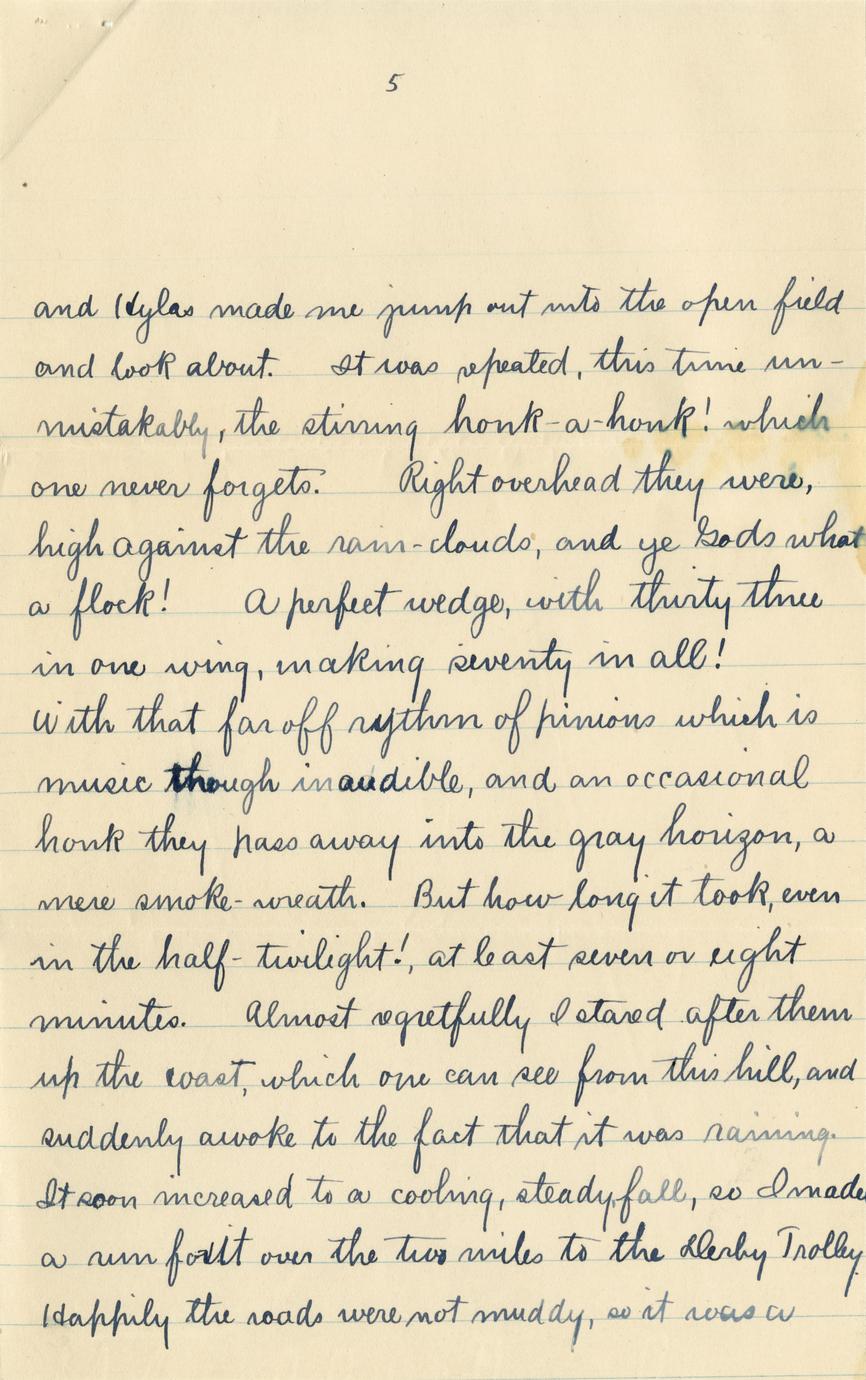 5
and Hylas made me jump out into the open field
and look about. It was repeated, this time un-
mistakably, the stirring honk-a-honk! which
one never forgets. Right overhead they were,
high against the rain-clouds, and ye Gods what
a flock! A perfect wedge, with thirty three
in one wing, making seventy in all!
With that far off rythm of pinions which is
music though inaudible, and an occasional
honk they pass away into the gray horizon, a
mere smoke-wreath. But how long it took, even
in the half-twilight!, at least seven or eight
minutes. Almost regretfully I stared after them
up the coast, which one can see from this hill, and
suddenly awoke to the fact that it was raining.
It soon increased to a cooling, steady, fall, so I made
a run for it over the two miles to the Derby Trolley.
Happily the roads were not muddy, so it was a